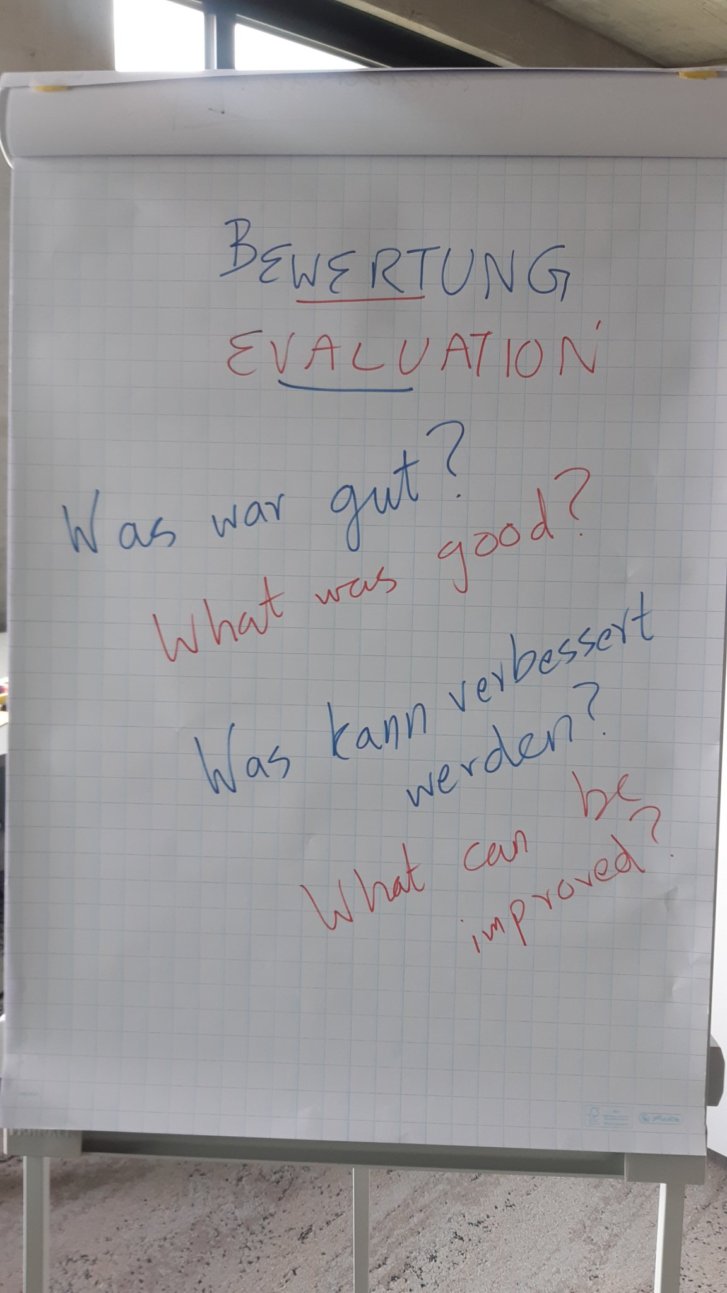 BEWERTUNG
EVALUATION
Was war gut?
What was good?
Was kann verbessert
werden?
What can be
improved?